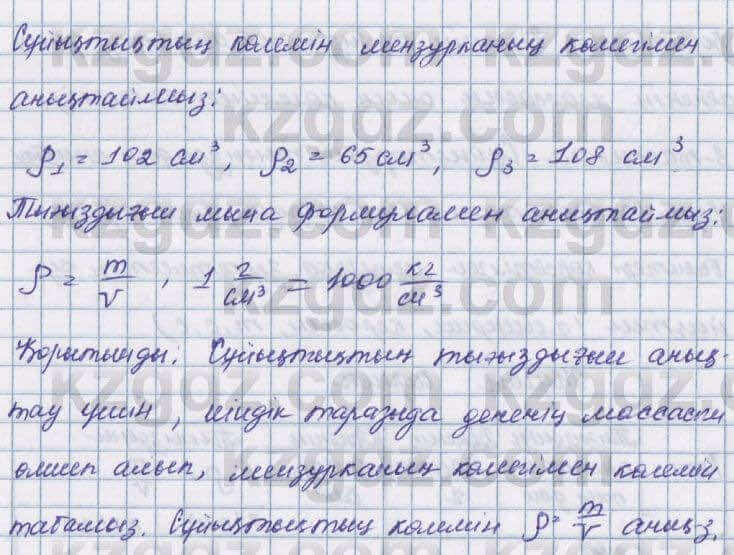 Сұйықтықтың көлемін мензурканың көмегімен
анықтаймыз:
ρ₁ = 102 см³, ρ₂ = 65 см³, ρ₃ = 108 см³
Тығыздығын мына формуламен анықтаймыз:
ρ = m/v , 1 г/см³ = 1000 кг/см³
Қорытынды. Сұйықтықтың тығыздығын анық-
тау үшін, иіндік таразыда дененің массасын
өлшеп алып, мензурканың көмегімен көлемін
табамыз. Сұйықтықтың көлемін ρ = m/v анық-з.